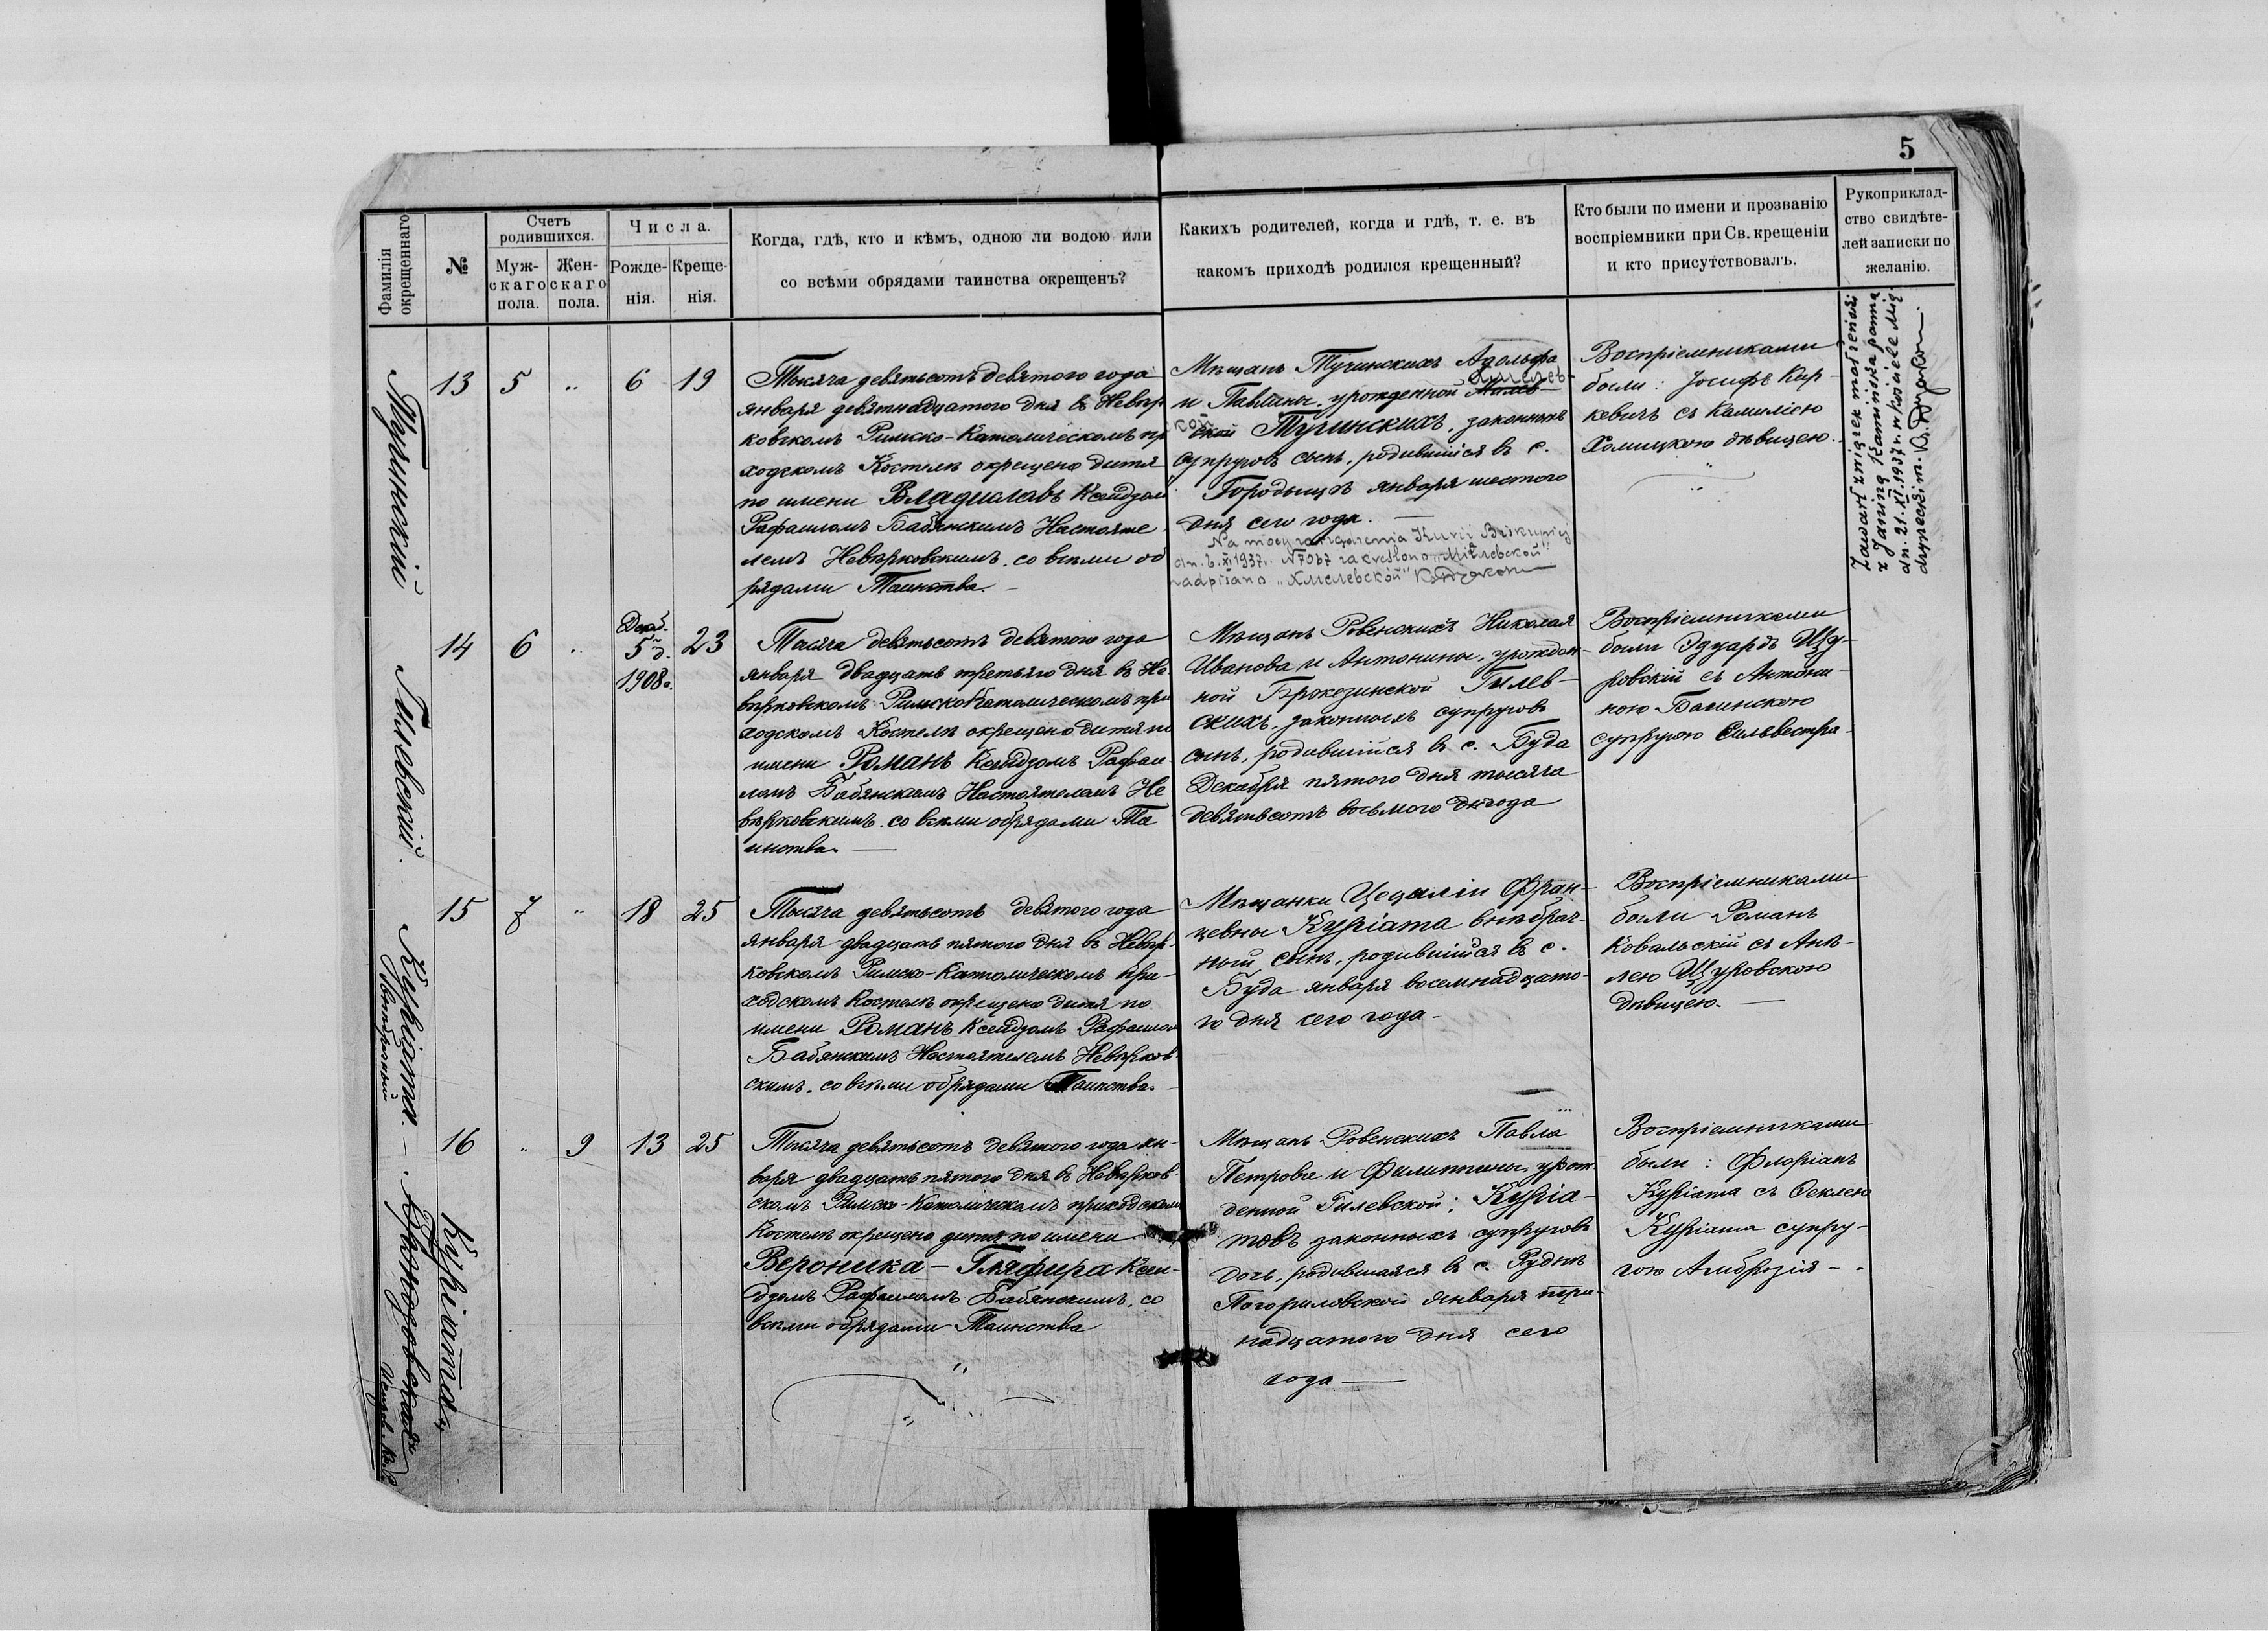 5
Фамилія
окрещеннаго
№
Счетъ
родившихся.
Муж-
скаго
пола.
Жен-
скаго
пола.
Числа.
Рожде-
нія.
Креще-
нія.
Когда, гдѣ, кто и кѣмъ, одною ли водою или
со всѣми обрядами таинства окрещенъ?
Какихъ родителей, когда и гдѣ, т. е. въ
какомъ приходѣ родился крещенный?
Кто были по имени и прозванію
воспріемники при Св. крещеніи
и кто присутствовалъ.
Рукоприклад-
ство свидѣте-
лей записки по
желанію.
Тучинскій
13 5 " 6 19
Тысяча девятьсотъ девятого года
января девятнадцатого дня въ Невѣр
ковскомъ Римско-Католическомъ пр
ходскомъ Костелѣ окрещено дитя
по имени Владиславъ Ксендзом
Рафаиломъ Бабянскимъ Настояте
лемъ Невѣрковскимъ, со всѣми об
рядами Таинства.
Мѣщанъ Тучинскихъ Адольфа
Хмелев-
и Павлины, урожденной
кой
ской Тучинскихъ, законныхъ
супруговъ сынъ, родившійся въ с.
Городыщѣ января шестого
дня сего года.
Na mocy zarządzenia Kurii Biskupiej
dn. 6.XI.1937r. N7067 zakreślono
nadpisano „Хмелевской"
Воспріемниками
были: Іосифъ Кир-
кевичъ съ Камиліею
Холмицкою дѣвицею.
Zawarł związek małżeński
z Janiną Kamińską panną
dn. 21.XI.1937 r. w kościele
Гилевскій.
14 6 " Декаб. 5 д. 1908 г. 23
Тысяча девятьсотъ девятого года
января двадцать третьяго дня въ Не
вѣрковскомъ Римско Католическомъ при
ходскомъ Костелѣ окрещено дитя по
имени Романъ Ксендзомъ Рафаи
ломъ Бабянскимъ Настоятелемъ Не
вѣрковскимъ, со всѣми обрядами Та
инства.
Мѣщанъ Ровенскихъ Николая
Иванова и Антонины, урожден-
ной Бржезинской Гилев-
скихъ, законныхъ супруговъ
сынъ, родившійся въ с. Буда
Декабря пятого дня тысяча
девятьсотъ восьмого года
Воспріемниками
были Эдуардъ Щу-
ровскій съ Антони-
ною Багинскою
супругою Сильвестра.
Куріата.
внѣбрачный
15 7 " 18 25
Тысяча девятьсотъ девятого года
января двадцать пятого дня въ Невѣр-
ковскомъ Римско-Католическомъ при-
ходскомъ Костелѣ окрещено дитя по
имени Романъ Ксендзомъ Рафаилом
Бабянскимъ Настоятелемъ Невѣрков-
скимъ, со всѣми обрядами Таинства.
Мѣщанки Цециліи Фран-
цевны Куріата внѣбрач-
ный сынъ, родившійся въ с.
Буда января восемнадцато-
го дня сего года -
Воспріемниками
были Романъ
Ковальскій съ Анѣ-
лею Щуровскою
дѣвицею.
Куріата.
16 " 9 13 25
Тысяча девятьсотъ девятого года ян-
варя двадцать пятого дня въ Невѣрков-
скомъ Римско-Католическомъ приходскомъ
Костелѣ окрещено дитя по имени
Вероника - Гляфира Ксен-
дзомъ Рафаиломъ Бабянскимъ, со
всѣми обрядами Таинства
Мѣщанъ Ровенскихъ Павла
Петрова и Филипины, урож
денной Гилевской; Куріа-
товъ законныхъ супруговъ
дочь, родившаяся въ с. Руднѣ
Погориловской января три-
надцатого дня сего
года
Воспріемниками
были: Флоріанъ
Куріата съ Феклею
Куріата супру-
гою Амброзія -